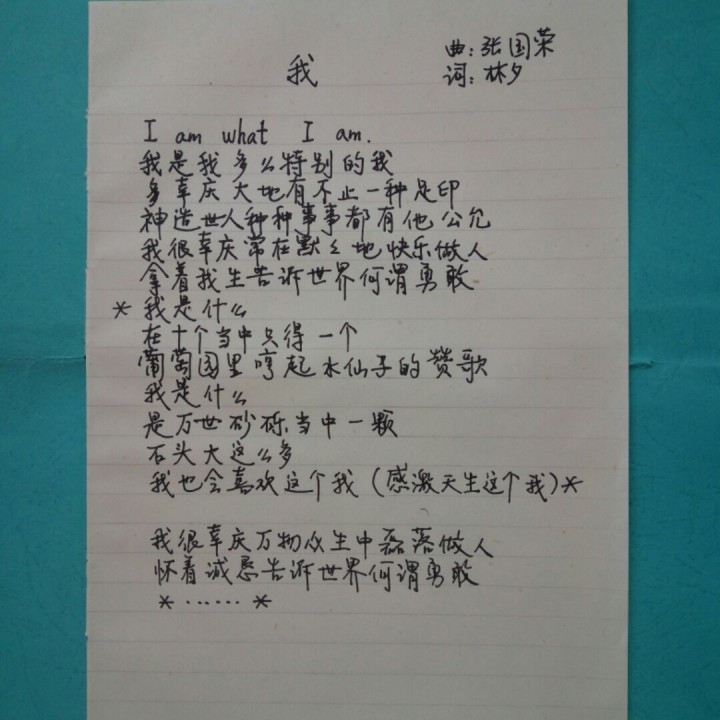 我
曲：张国荣
词：林夕
I am what I am.
我是我多么特别的我
多幸庆大地有不止一种足印
神造世人种种事事都有他公允
我很幸庆常在默々地快乐做人
拿着我生告诉世界何谓勇敢
* 我是什么
在十个当中只得一个
葡萄园里哼起水仙子的赞歌
我是什么
是万世砂砾当中一颗
石头大这么多
我也会喜欢这个我（感激天生这个我）*
我很幸庆万物众生中磊落做人
怀着诚恳告诉世界何谓勇敢
* …… *